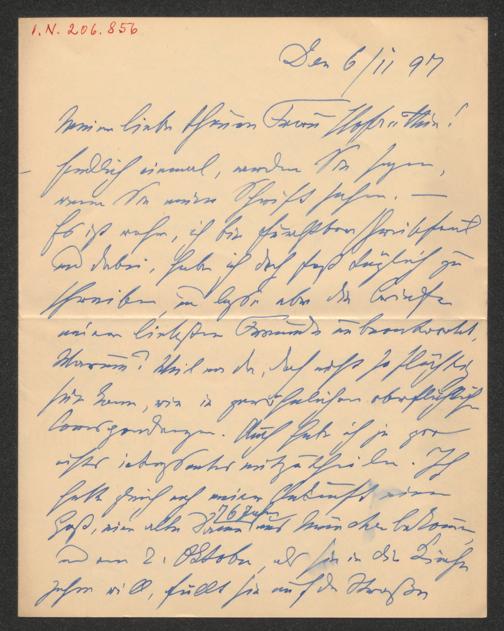 I.N. 206.856
Den 6/II 97
Meine liebe theure Frau Hofräthin!
Endlich einmal, werden Sie sagen,
wenn Sie meine Schrift sehen. —
Es ist wahr, ich bin furchtbar schreibfaul
und dabei, habe ich doch fast täglich zu
schreiben, u lasse aber die Briefe
meiner liebsten Freunde unbeantwortet.
Warum? Weil man da, doch nicht so flüchtig
sein kann, wie in gewöhnlichen oberflächlichen
Correspondenzen. Auch habe ich ja gar
nichts interessantes mitzutheilen. Ich
hatte gleich nach meiner Ankunft einen
Gast, eine alte Dame 76 Jahre aus München bekommen
und am 2. Oktober, als sie in die Kirche
gehen will, fällt sie auf der Straße